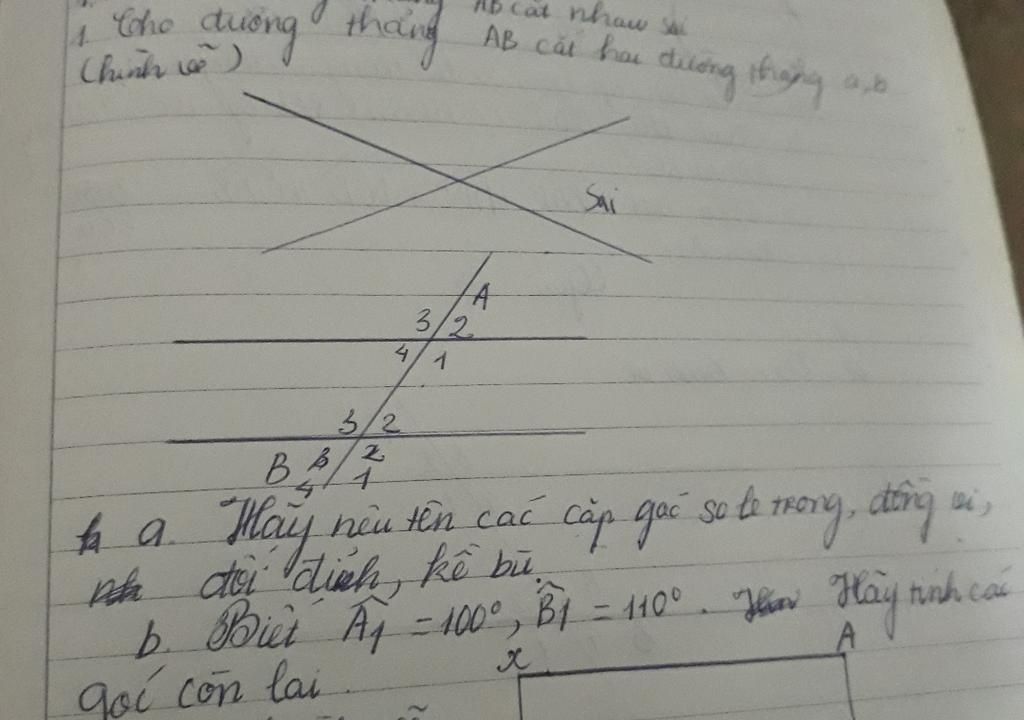 AB cắt nhau sai
1. Cho đường thẳng AB cắt hai đường thẳng a, b
(hình vẽ)
Sai
A
3 2
4 1
3 2
B
4 1
a. Hãy nêu tên các cặp góc so le trong, đồng vị,
đối đỉnh, kề bù.
b. Biết Â1 = 100°, B̂1 = 110°. Hãy tính các
x A
góc còn lại.